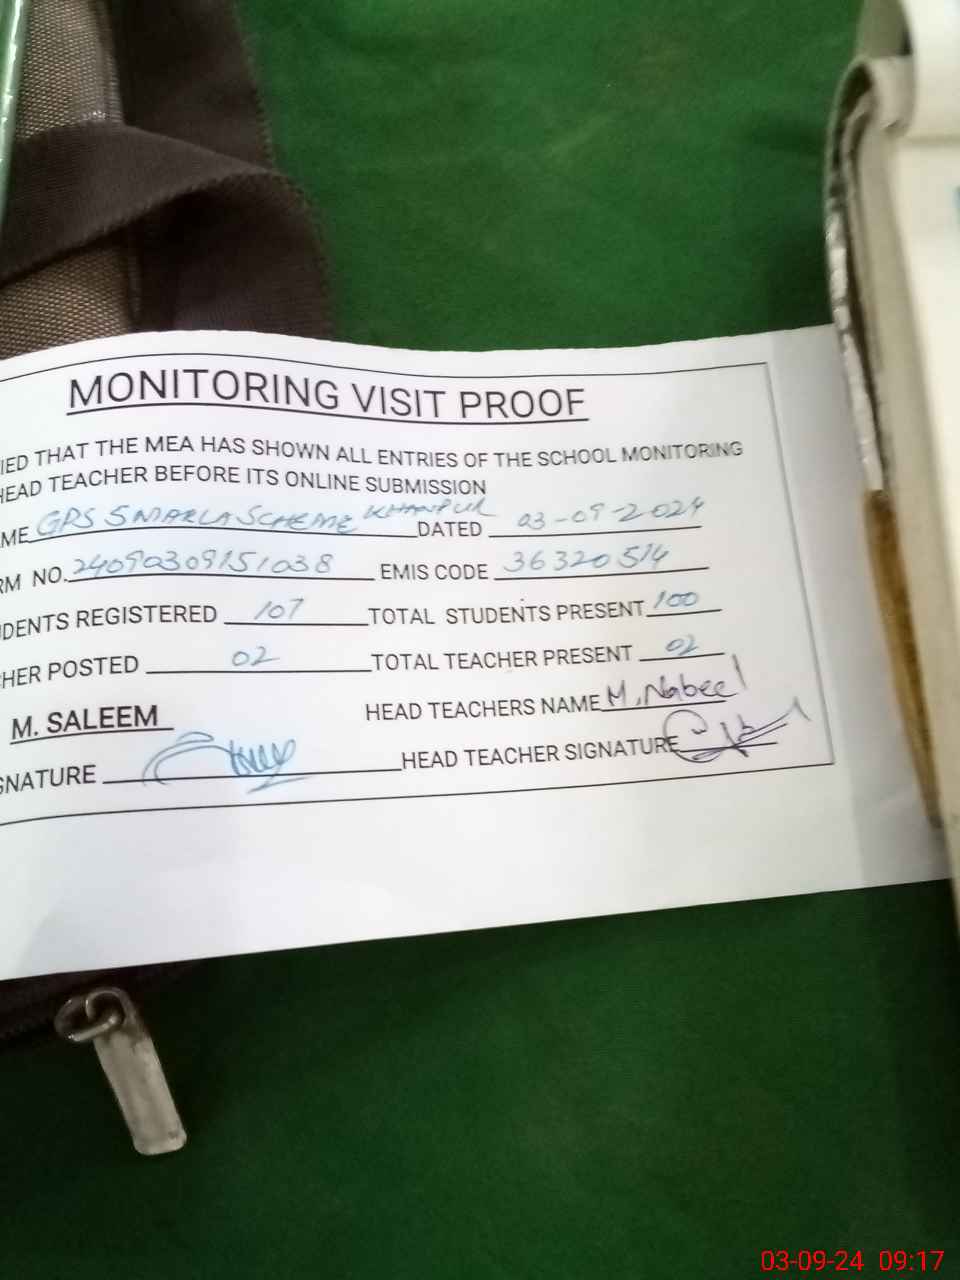 MONITORING VISIT PROOF
IED THAT THE MEA HAS SHOWN ALL ENTRIES OF THE SCHOOL MONITORING
HEAD TEACHER BEFORE ITS ONLINE SUBMISSION
ME GPS 5 MARLA SCHEME KHANPUR DATED 03-09-2024
RM NO. 24090309151038 EMIS CODE 36320514
DENTS REGISTERED 107 TOTAL STUDENTS PRESENT 100
HER POSTED 02 TOTAL TEACHER PRESENT 02
M. SALEEM HEAD TEACHERS NAME M. Nabeel
GNATURE HEAD TEACHER SIGNATURE
03-09-24 09:17